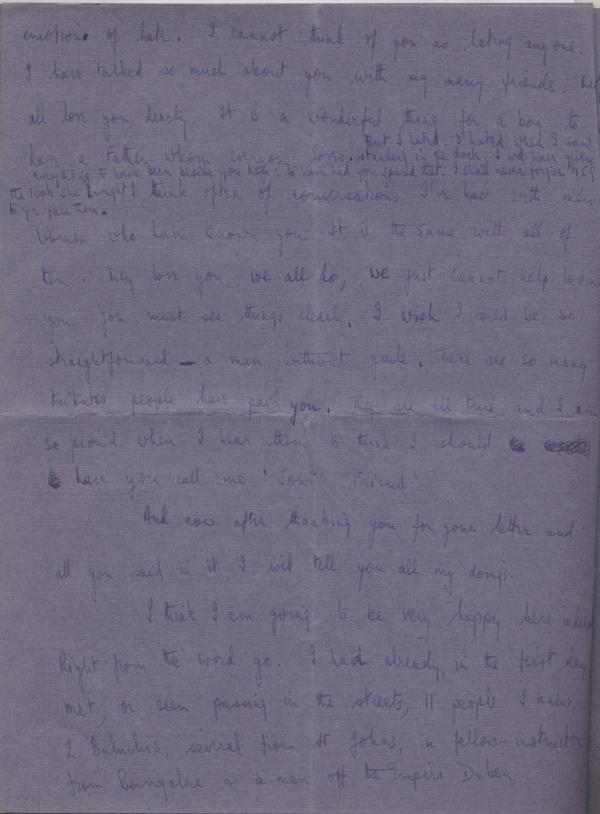 emotions of hate. I cannot think of you as hating anyone.
I have talked so much about you with my many friends.
all love you dearly. It is a wonderful thing for a boy to
But I hated. I hated when I saw
have a Father whom everyone loves. standing in the dock; I wd have given
anything to have been beside you then: to have had you spared that. I shall never forgive
the look she brought I think often of conversations I've had with men
to yr face then.
women who have known you. It is the same with all of
them. They love you, we all do, we just cannot help loving
you. you must see things clearly. I wish I could be so
straightforward — a man without guile. There are so many
tributes people have paid you. They are all true and I am
so proud when I hear them to think I should
have you call me "Son" "Friend"
And now after thanking you for your letter and
all you said in it, I will tell you all my doings.
I think I am going to be very happy here indeed
Right from the word go. I had already, in the first day
met, or seen passing in the streets, 11 people I knew,
2 Baluchis, several from St Johns, a fellow-instructor
from Bangalore & a man off the Empire Deben.